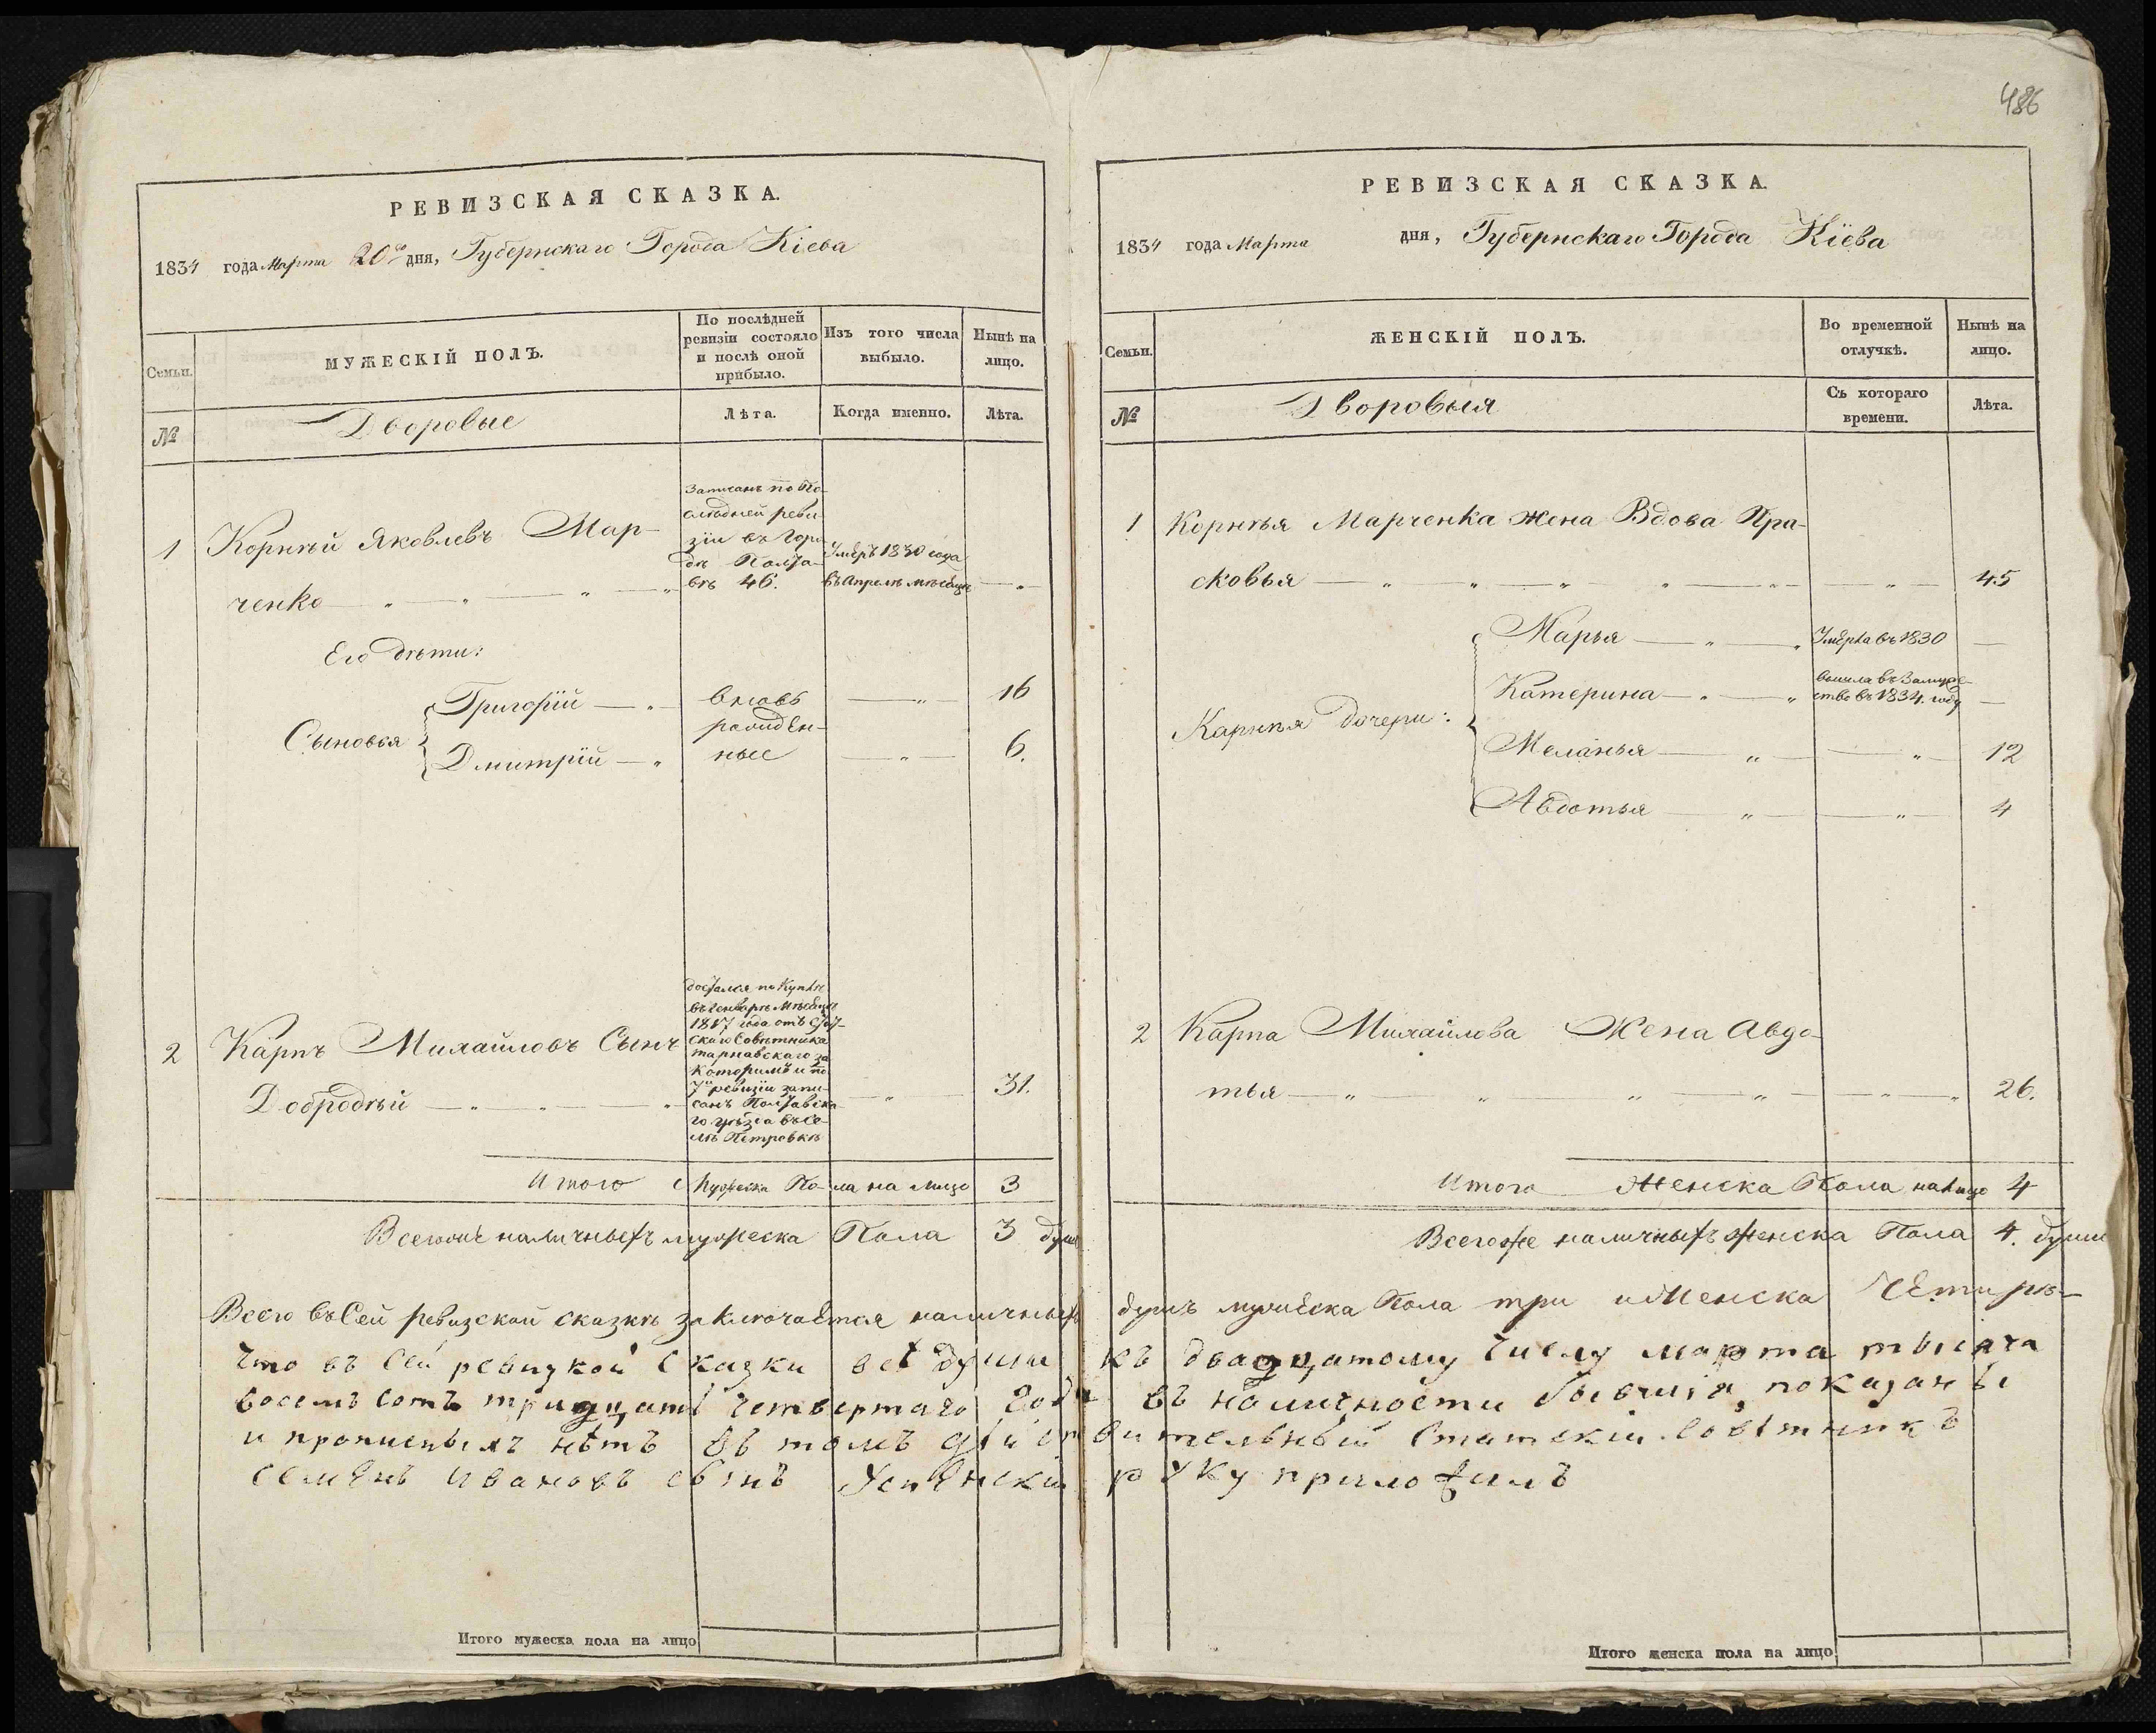 486
РЕВИЗСКАЯ СКАЗКА.
1834 года Марта 20го дня, Губернскаго Города Кіева
Семьи.
МУЖЕСКІЙ ПОЛЪ.
По послѣдней
ревизіи состояло
и послѣ оной
прибыло.
Изъ того числа
выбыло.
Нынѣ на
лицо.
№
Дворовые
Лѣта.
Когда именно.
Лѣта.
1 Корнѣй Яковлевъ Мар-
ченко
Записанъ по По-
слѣдней реви-
зіи въ Горо-
дѣ Полта-
вѣ 46.
Умеръ 1830 года
въ Апрелѣ мѣсецѣ
Его дѣти:
Сыновья
Григорій
Дмитрій
вновь
рожден-
ные
16
6.
2 Карпъ Михайловъ Сынъ
Добродѣй
достался по Купли
въ Генварѣ Мѣсеце
1817 года отъ Стат-
скаго Совѣтника
тарнавскаго за
Которимъ и по
7й ревизіи запи-
санъ Полтавска-
го уѣзда въ Се-
лѣ Петровкѣ
31.
Итого Мужеска Пола на лицо 3
Всегожъ наличныхъ мужеска Пола 3 душ
Всего въ Сей ревизской сказкѣ заключается наличныхъ
что въ сей ревизкой сказки всѣ души
восемъ сотъ тридцать четвертаго года
и прописныхъ нѣтъ въ томъ дѣйст
семенъ Ивановъ сынъ Успенскій
Итого мужеска пола на лицо
РЕВИЗСКАЯ СКАЗКА.
1834 года Марта дня, Губернскаго Города Кіева
Семьи.
ЖЕНСКІЙ ПОЛЪ.
Во временной
отлучкѣ.
Нынѣ на
лицо.
№
Дворовыя
Съ котораго
времени.
Лѣта.
1 Корнѣя Марченка жена Вдова Пра-
сковья 45
Карнѣя дочери:
Марья Умерла въ 1830
Катерина вышла въ Замуже-
ство въ 1834. году
Меланья 12
Авдотья 4
2 Карпа Михайлова Жена Авдо-
тья 26.
Итого Женска Пола на лицо 4
Всегоже наличныхъ женска Пола 4. души
душъ мужеска Пола три и Женска Четыре
къ двадцатому числу марта тысяча
въ наличности бывшія показаны
вительный статскій совѣтникъ
руку приложилъ
Итого женска пола на лицо